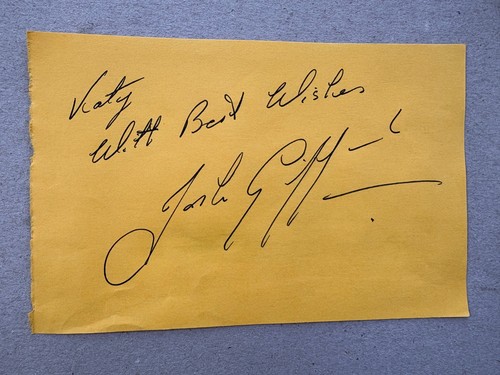 Katy
With Best Wishes
Josh Gifford